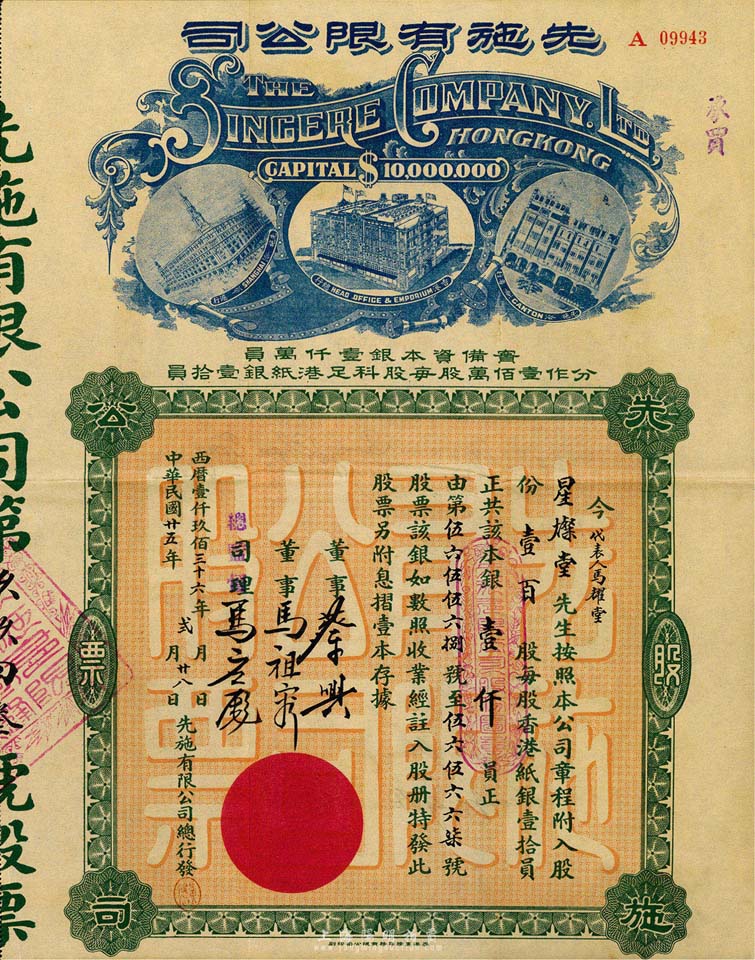 先施有限公司
A 09943
THE
SINCERE COMPANY, LTD.
HONGKONG
CAPITAL $10,000,000
承買
SHANGHAI
HEAD OFFICE & EMPORIUM
CANTON
實備資本銀壹仟萬員
分作壹佰萬股每股科足港紙銀壹拾員
先施公司
股票
今代表人馬耀堂
星燦堂先生按照本公司章程附入股
份壹百股每股香港紙銀壹拾員
正共該本銀壹仟員正
由第伍六伍伍六捌號至伍六伍六六柒號
股票該銀如數照收業經註入股册特發此
股票另附息摺壹本存據
董事蔡興
董事馬祖容
總司理馬立彪
西曆壹仟玖佰三十六年 月 日
中華民國廿五年 弍月廿八日
先施有限公司總行發
先施有限公司第 玖玖四叁號股票